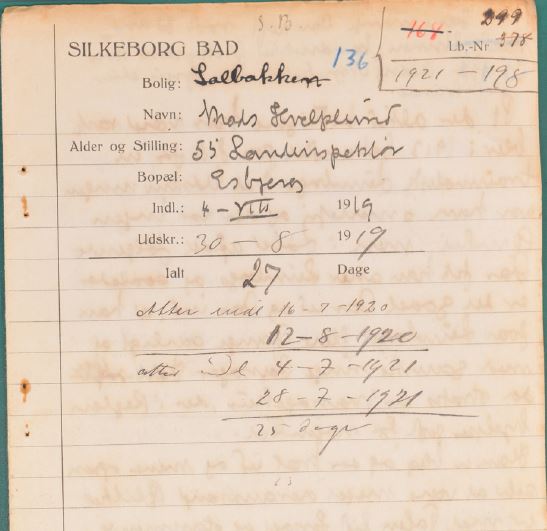 S. B.
168 299
SILKEBORG BAD 136 Lb.-Nr 378
1921 - 198
Bolig: Solbakken
Navn: Mads Hvelplund
Alder og Stilling: 55 Landinspektør
Bopæl: Esbjerg
Indl.: 4 - VIII 1919
Udskr.: 30 - 8 1919
Ialt 27 Dage
Atter indl 16 - 7 - 1920
12 - 8 - 1920
atter Idl 4 - 7 - 1921
28 - 7 - 1921
25 dage